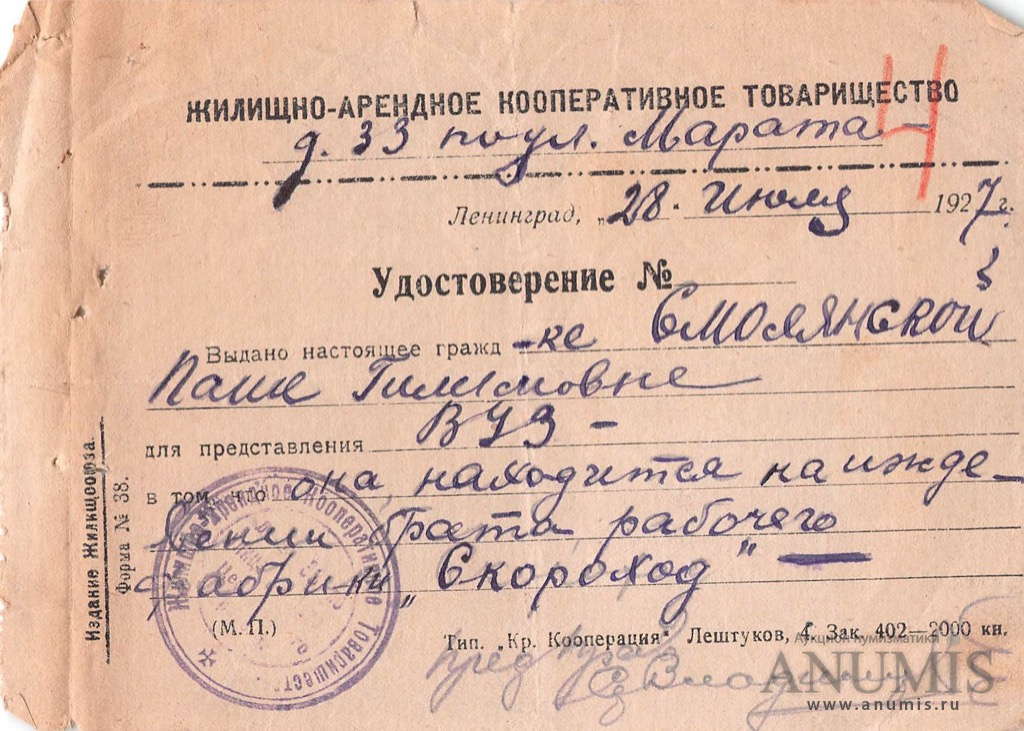 ЖИЛИЩНО-АРЕНДНОЕ КООПЕРАТИВНОЕ ТОВАРИЩЕСТВО
д. 33 по ул. Марата
4
Ленинград, „28. Июля 1927 г.
Удостоверение №
Выдано настоящее гражд-ке Смолянской
Паше
для представления ВУЗ –
в том, что она находится на ижде-
вении брата, рабочего
фабрики „Скороход"
(М. П.)
Тип. „Кр. Кооперация" Лештуков, 4. Зак. 402—2000 кн.
Издание Жилищсоюза.
Форма № 38.
Жилищно-Арендное Кооперативное Товарищест
Аукцион нумизматики
ANUMIS
www.anumis.ru